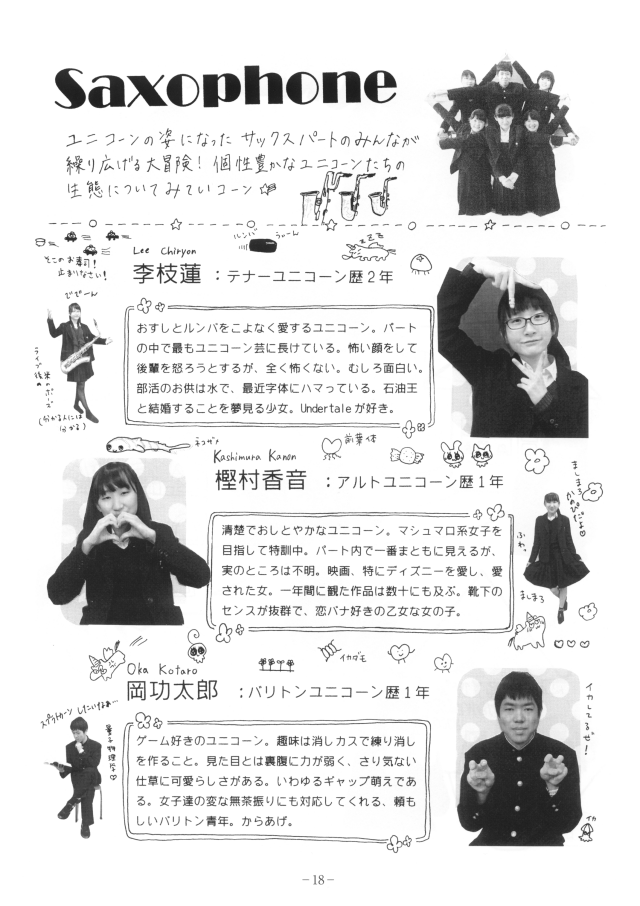 Saxophone
ユニコーンの姿になった サックスパートのみんなが
繰り広げる大冒険！個性豊かなユニコーンたちの
生態についてみていコーン
ルンバ
うぃーん
そこのお寿司！
止まりなさい！
Lee Chiryon
李枝蓮 ：テナーユニコーン歴２年
びびーん
ライブ後の
米のポーズ
(分かる人には
分かる)
おすしとルンバをこよなく愛するユニコーン。パート
の中で最もユニコーン芸に長けている。怖い顔をして
後輩を怒ろうとするが、全く怖くない。むしろ面白い。
部活のお供は水で、最近字体にハマっている。石油王
と結婚することを夢見る少女。Undertaleが好き。
ネコザメ
前葉体
Kashimura Kanon
樫村香音 ：アルトユニコーン歴１年
清楚でおしとやかなユニコーン。マシュマロ系女子を
目指して特訓中。パート内で一番まともに見えるが、
実のところは不明。映画、特にディズニーを愛し、愛
された女。一年間に観た作品は数十にも及ぶ。靴下の
センスが抜群で、恋バナ好きの乙女な女の子。
ましまろ
かのぴだよ♡
ふわっ
ましまろ
イカダモ
Oka Kotaro
岡功太郎 ：バリトンユニコーン歴１年
スプラトゥーン したいなぁ…
量子物理学♡
ゲーム好きのユニコーン。趣味は消しカスで練り消し
を作ること。見た目とは裏腹に力が弱く、さり気ない
仕草に可愛らしさがある。いわゆるギャップ萌えであ
る。女子達の変な無茶振りにも対応してくれる、頼も
しいバリトン青年。からあげ。
イカしてるぜ！
イカ
－18－